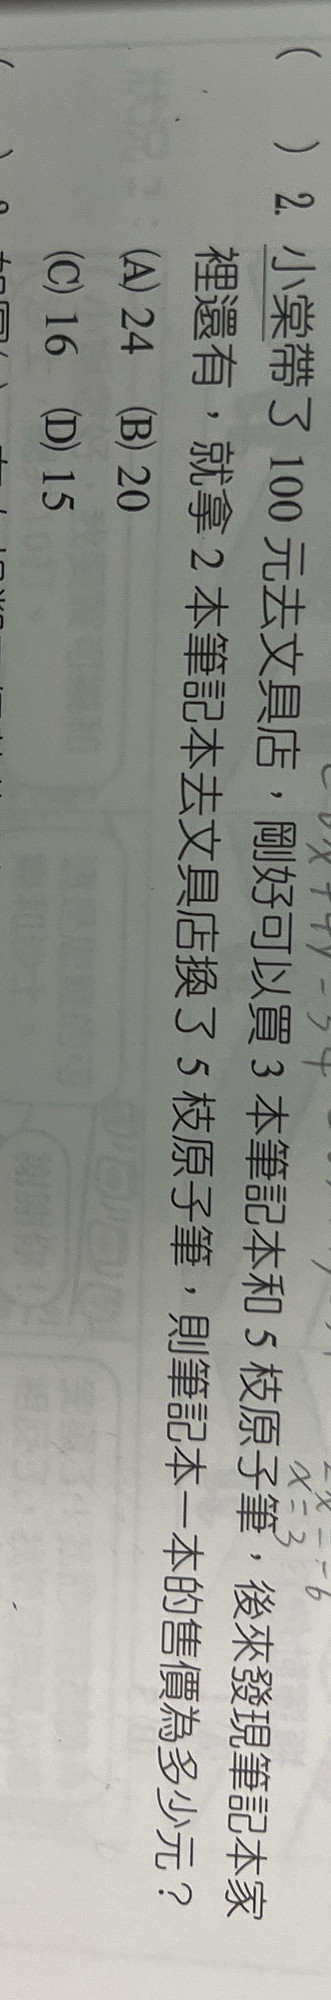 ( ) 2. 小棠帶了 100 元去文具店，剛好可以買 3 本筆記本和 5 枝原子筆，後來發現筆記本家
裡還有，就拿 2 本筆記本去文具店換了 5 枝原子筆，則筆記本一本的售價為多少元？
(A) 24 (B) 20
(C) 16 (D) 15
x=3